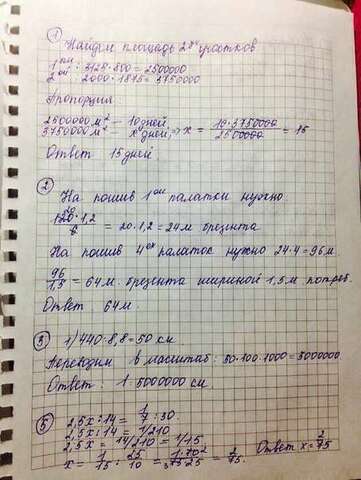 ①
Найдем площадь 2ух участков
1ый: 3125·800 = 2500000
2ой: 2000·1875 = 3750000
Пропорция
2500000 м² — 10 дней
3750000 м² — x дней, => x = 10·3750000 / 2500000 = 15
Ответ 15 дней.
②
На пошив 1ой палатки нужно
120·1,2 / 6 = 20·1,2 = 24м брезента
На пошив 4ех палаток нужно 24·4 = 96м
96 / 1,5 = 64м. брезента шириной 1,5м потреб.
Ответ: 64м.
③ 1) 440:8,8 = 50 км
Переводим в масштаб: 50·100·1000 = 5000000
Ответ: 1:5000000 см.
⑤
2,5x:14 = 1/7:30
2,5x:14 = 1/210
2,5x = 14/210 = 1/15
x = 1/15 : 25/10 = 2/75. Ответ x = 2/75